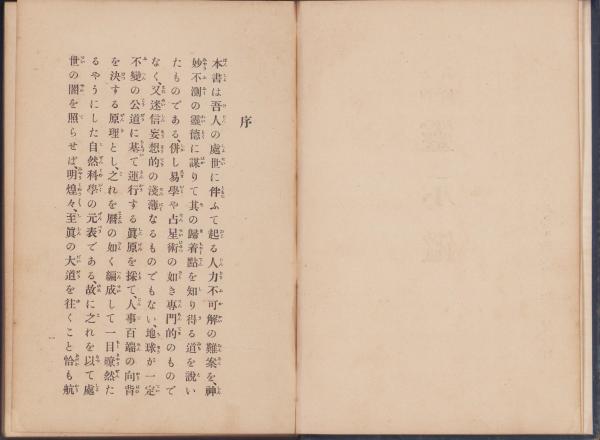 序
本書は吾人の處世に伴ふて起る人力不可解の難案を、神
妙不測の靈德に謀りて其の歸着點を知り得る道を說い
たものである、併し易學や占星術の如き專門的のもので
なく、又迷信妄想的の淺薄なるものでもない、地球が一定
不變の公道に基て運行する眞原を採て、人事百端の向背
を決する原理とし、之れを曆の如く編成して一目瞭然た
るやうにした自然科學の元表である、故に之れを以て處
世の闇を照らせば、明煌々、至眞の大道を往くこと恰も航